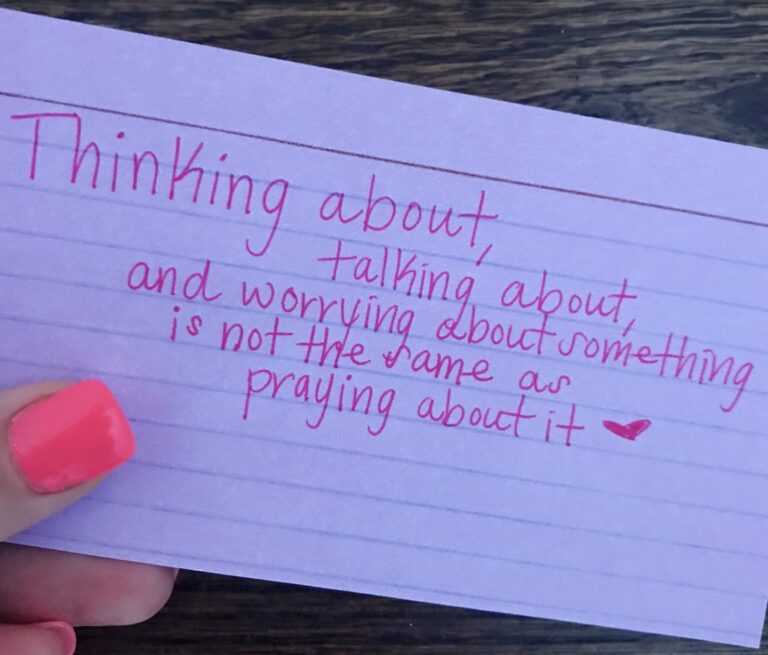 Thinking about,
talking about,
and worrying about something
is not the same as
praying about it ♥